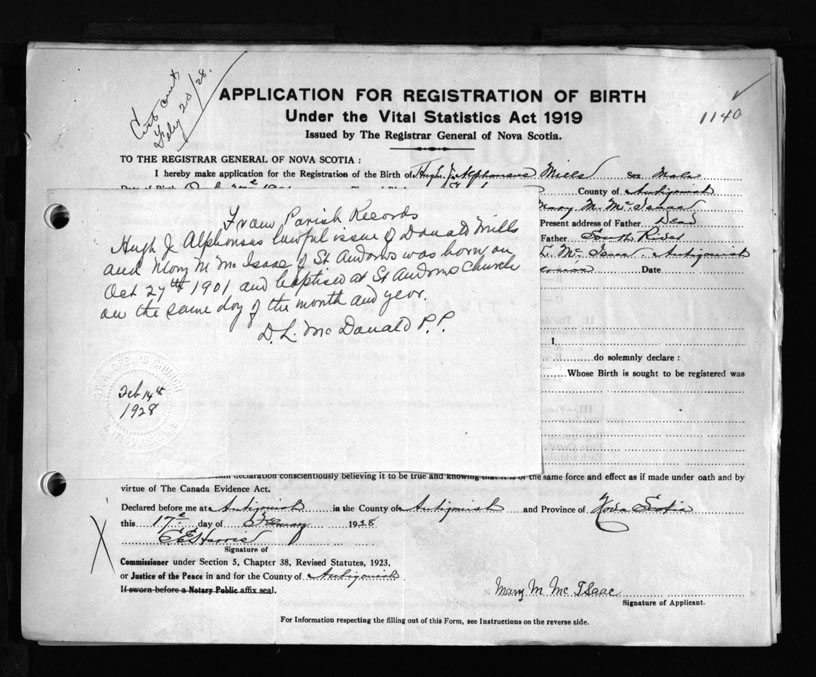 Feby 20/28.
APPLICATION FOR REGISTRATION OF BIRTH
1140
Under the Vital Statistics Act 1919
Issued by The Registrar General of Nova Scotia.
TO THE REGISTRAR GENERAL OF NOVA SCOTIA :
I hereby make application for the Registration of the Birth of Hugh J. Alphonsus Mills Sex Male
County of Antigonish
Mary M. McIsaac
Present address of Father Dead
Father South River
McIsaac. Antigonish
Date
From Parish Records
Hugh J Alphonsus lawful issue of Donald Mills
and Mary M McIsaac of St Andrews was born on
Oct 27th 1901 and baptised at St Andrews Church
on the same day of the month and year.
D. L. McDonald P.P.
Feb 14th
1928
I
do solemnly declare :
Whose Birth is sought to be registered was
declaration conscientiously believing it to be true and knowing that it is of the same force and effect as if made under oath and by
virtue of The Canada Evidence Act.
Declared before me at Antigonish in the County of Antigonish and Province of Nova Scotia
this 17th day of February 1928
Signature of
Commissioner under Section 5, Chapter 38, Revised Statutes, 1923,
or Justice of the Peace in and for the County of Antigonish
If sworn before a Notary Public affix seal.
Mary M. McIsaac
Signature of Applicant.
For Information respecting the filling out of this Form, see Instructions on the reverse side.